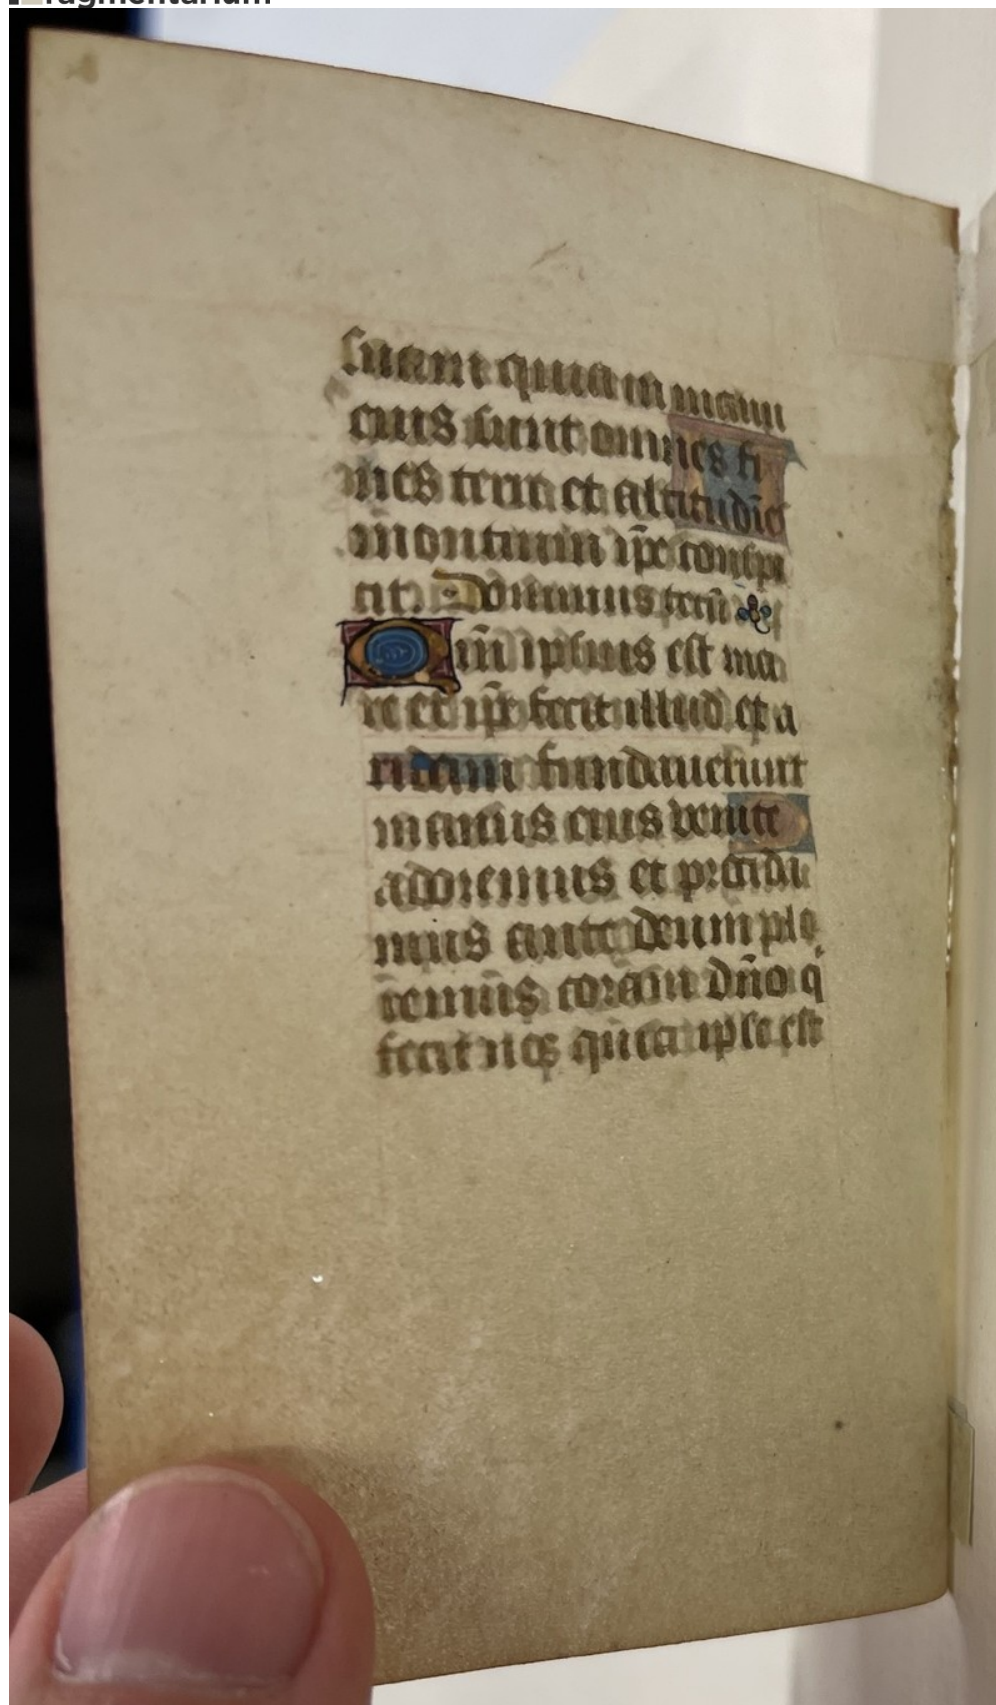 fragmentarium
suam quia in manu
eius sunt omnes fi
nes terre et altitudīes
montium ip̄e conspi
cit. Dominus tecū
Qm̄ ipsius est ma
re et ip̄e fecit illud et a
ridam fundauerunt
manus eius venite
adoremus et procida
mus ante deum plo
remus coram dn̄o q̄
fecit nos quia ipse est